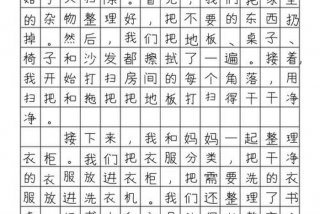 的杂物整理好，把不要的东西扔
掉。然后，我们把地板、桌子、
椅子和沙发都擦拭了一遍。接着，
我开始打扫房间的每个角落，用
扫把和拖把把地板打扫得干干净
净。
接下来，我和妈妈一起整理
衣柜。我们把衣服分类，把干净
的衣服放进衣柜，把需要洗的衣
服放进洗衣机。我们还整理了书